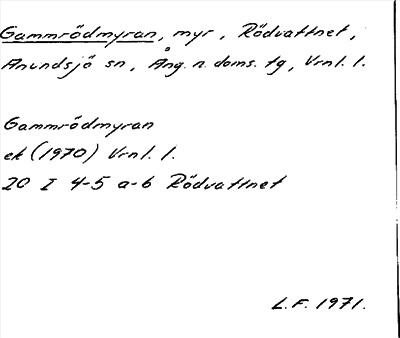 Gammrödmyran, myr, Rödvattnet,
Anundsjö sn, Ång. n. doms. tg, Vrnl. l.
Gammrödmyran
ek (1970) Vrnl. l.
20 I 4-5 a-b Rödvattnet
L.F. 1971.